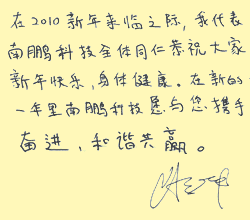 在2010新年来临之际，我代表
南鹏科技全体同仁恭祝大家
新年快乐，身体健康。在新的
一年里南鹏科技愿与您携手
奋进，和谐共赢。